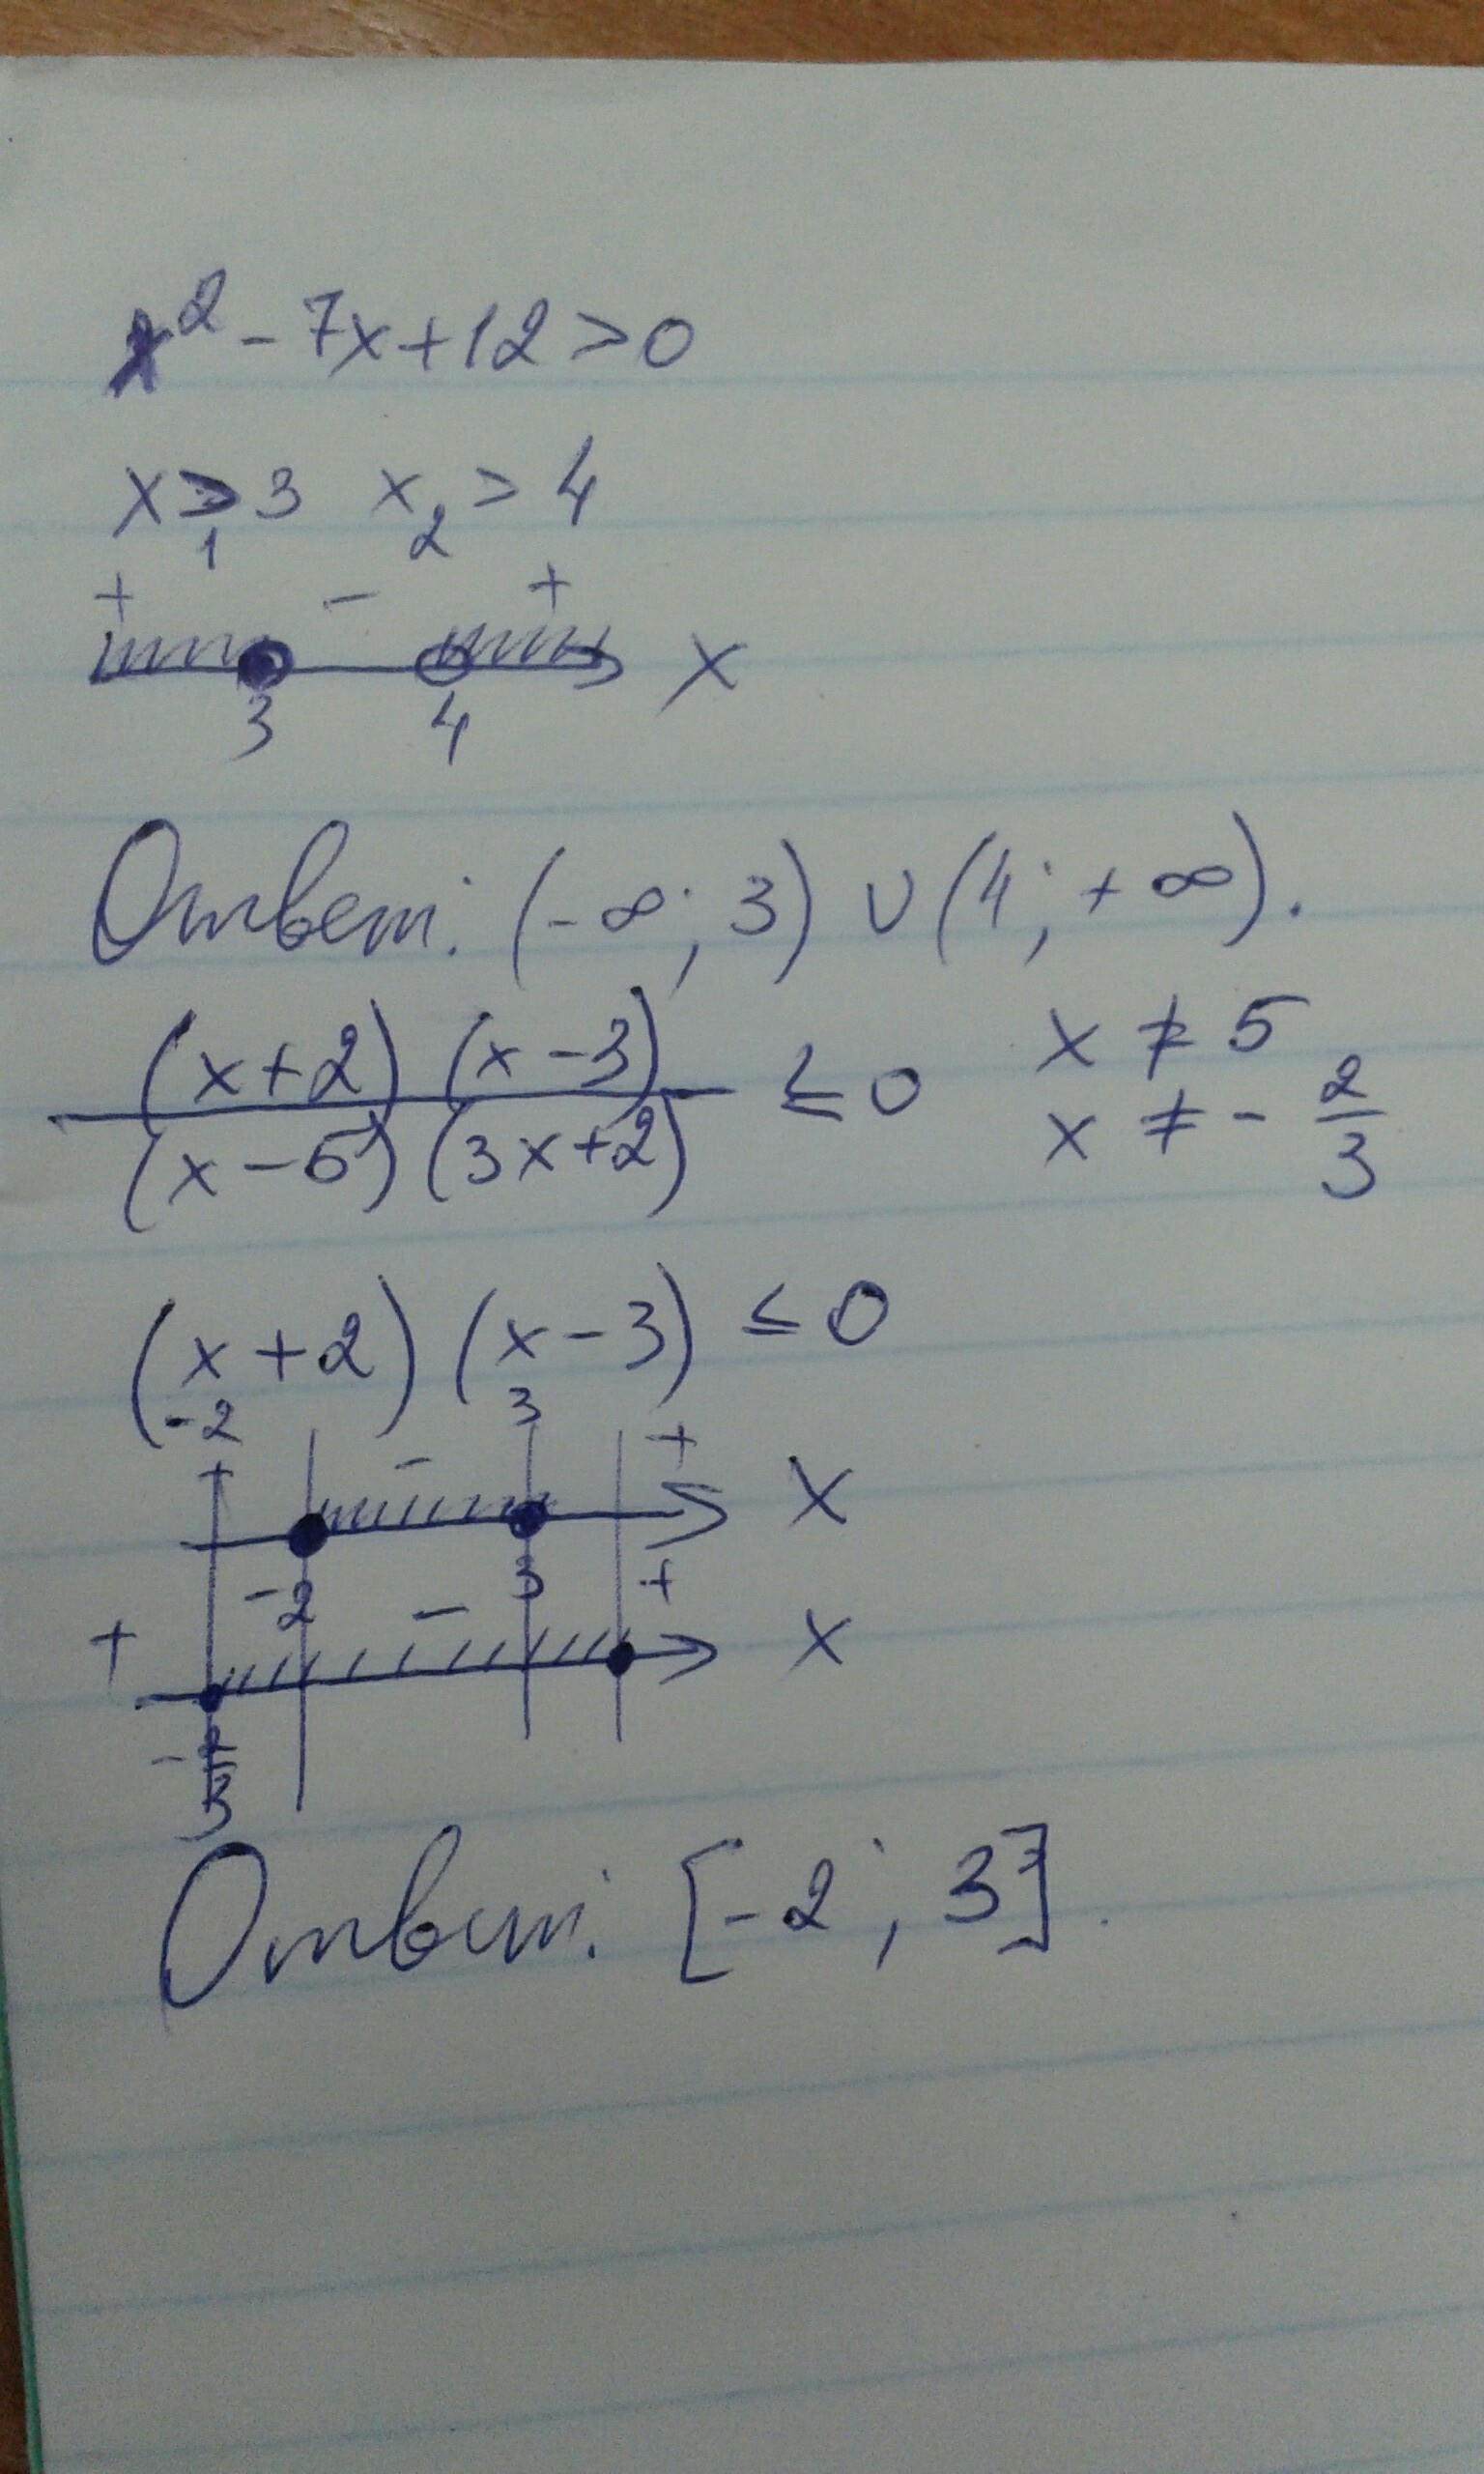 x² - 7x + 12 > 0
x₁ > 3 x₂ > 4
+ - +
3 4 x
Ответ: (-∞; 3) ∪ (4; +∞).
(x+2)(x-3) / (x-5)(3x+2) ≤ 0 x ≠ 5
x ≠ - 2/3
(x+2)(x-3) ≤ 0
-2 3
+ - + x
-2 3
+ - + x
- 2/3
Ответ: [-2; 3].